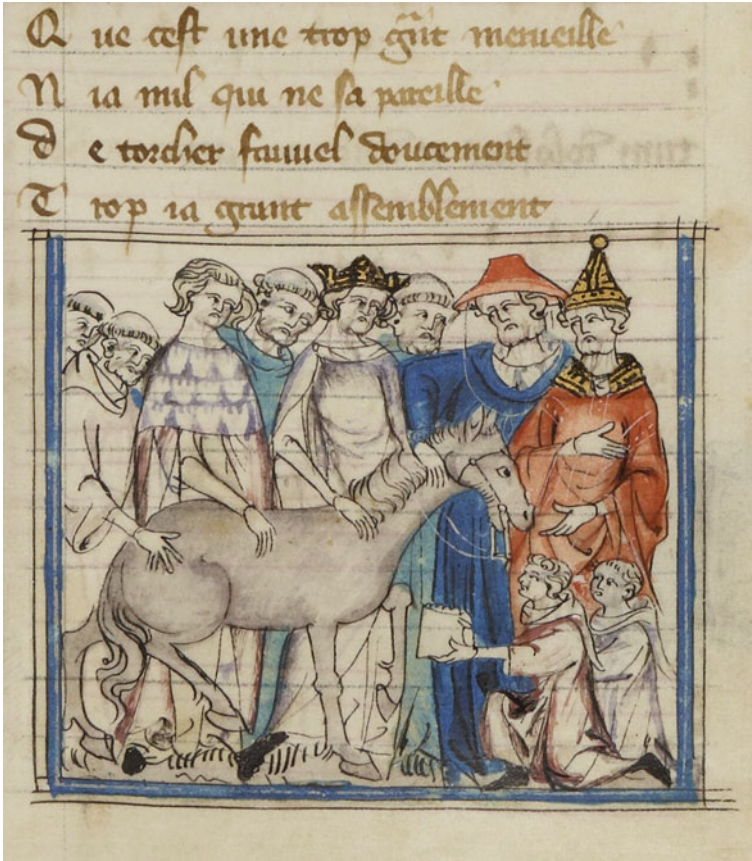 Q ue cest une trop gñt merueille
N ia nul qui ne sa pareille
D e torcher fauuel doucement
T rop ia grant assemblement